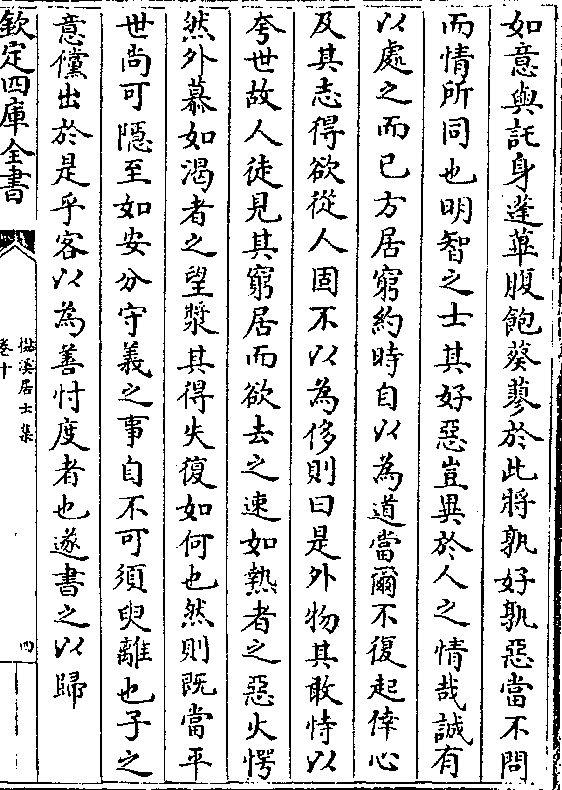 如意與託身蓬蓽腹飽葵蓼於此將孰好孰惡當不問
而情所同也明智之士其好惡豈異於人之情哉誠有
以處之而已方居窮約時自以為道當爾不復起倖心
及其志得欲從人固不以為侈則曰是外物其敢恃以
夸世故人徒見其窮居而欲去之速如熱者之惡火愕
然外慕如渴者之望漿其得失復如何也然則既當平
世尚可隱至如安分守義之事自不可須臾離也子之
意儻出於是乎客以為善忖度者也遂書之以歸
欽定四庫全書
溪居士集
卷十
四